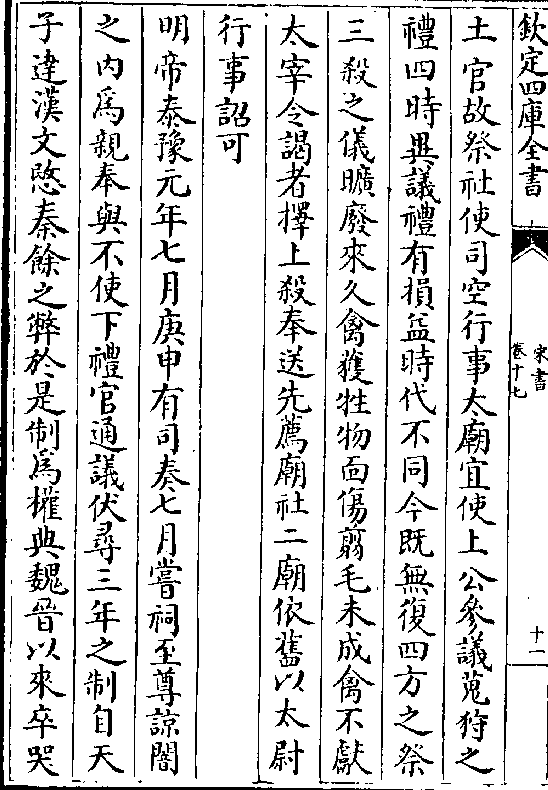 欽定四庫全書
宋書
卷十七
十一
土官故祭社使司空行事太廟宜使上公參議蒐狩之
禮四時異議禮有損益時代不同今既無復四方之祭
三殺之儀曠廢來久禽獲牲物面傷翦毛未成禽不獻
太宰令謁者擇上殺奉送先薦廟社二廟依舊以太尉
行事詔可
明帝泰豫元年七月庚申有司奏七月嘗祠至尊諒闇
之内為親奉與不使下禮官通議伏尋三年之制自天
子達漢文愍秦餘之弊於是制為權典魏晉以來卒哭